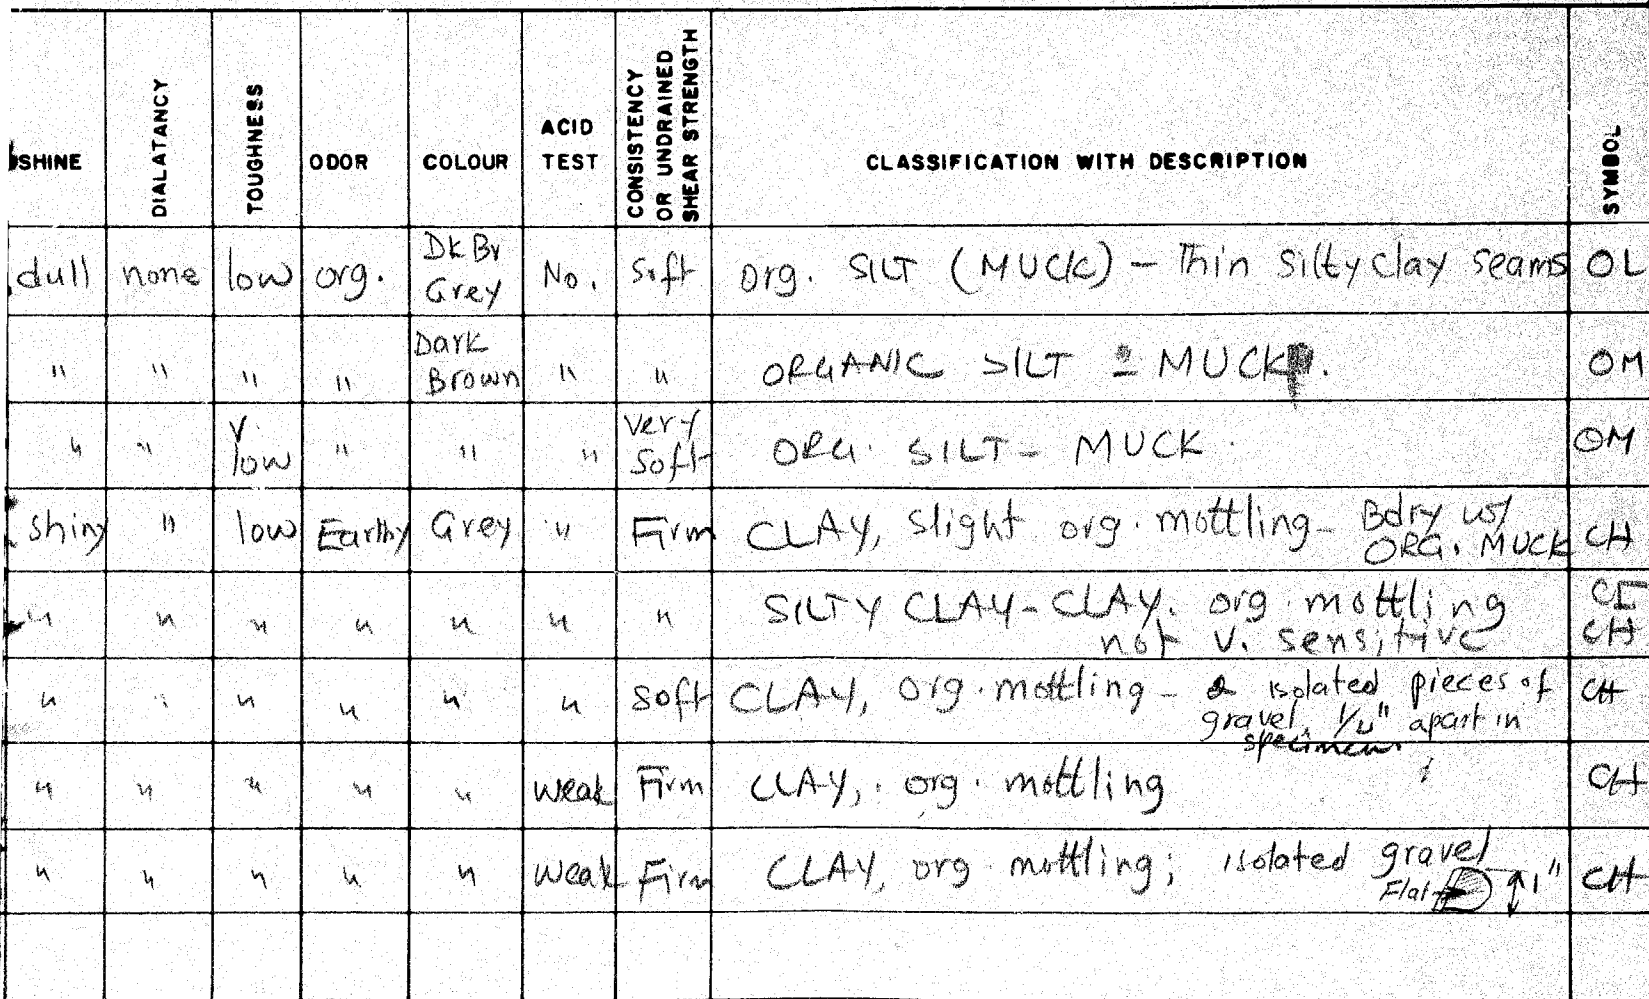 SHINE DIALATANCY TOUGHNESS ODOR COLOUR ACID TEST CONSISTENCY OR UNDRAINED SHEAR STRENGTH CLASSIFICATION WITH DESCRIPTION SYMBOL
dull none low org. Dk Br Grey No. Soft org. SILT (MUCK) - Thin Silty clay seams OL
" " " " Dark Brown " " ORGANIC SILT MUCK. OM
" " V. low " " " very soft ORG. SILT - MUCK. OM
shiny " low Earthy Grey " Firm CLAY, slight org. mottling - Bdry w/ ORG. MUCK CH
" " " " " " " SILTY CLAY-CLAY. org. mottling CI
not v. sensitive CH
" " " " " " soft CLAY, org. mottling - 2 isolated pieces of CH
gravel, 1/4" apart in
specimen.
" " " " " weak Firm CLAY, org. mottling CH
" " " " " weak Firm CLAY, org. mottling; isolated gravel CH
Flat 1"